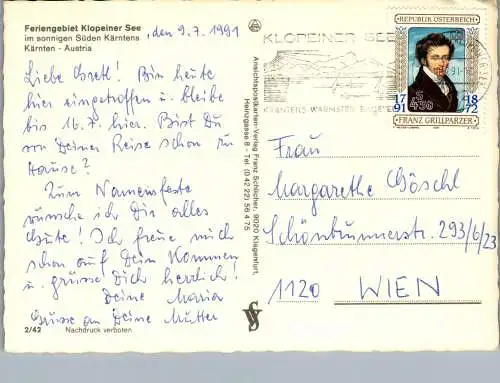 Feriengebiet Klopeiner See
im sonnigen Süden Kärntens
Kärnten - Austria
, den 9.7.1991
Liebe Gretl! Bin heute
hier eingetroffen u. bleibe
bis 16.7. hier. Bist Du
von Deiner Reise schon zu
Hause?
Zum Namensfeste
wünsche ich Dir alles
Gute! Ich freue mich
schon auf Dein Kommen
u. grüsse Dich herzlich!
Deine Maria
Grüsse an Deine Mutter
2/42 Nachdruck verboten
Ansichtspostkarten-Verlag Franz Schlicher, 9020 Klagenfurt,
Heinzgasse 8 - Tel. (0 42 22) 56 4 75
KLOPEINER SEE
KÄRNTENS WÄRMSTER BADESEE
REPUBLIK ÖSTERREICH
S 4.50
17 91
18 72
FRANZ GRILLPARZER
Frau
Margarethe Göschl
Schönbrunnerstr. 293/6/23
1120 WIEN